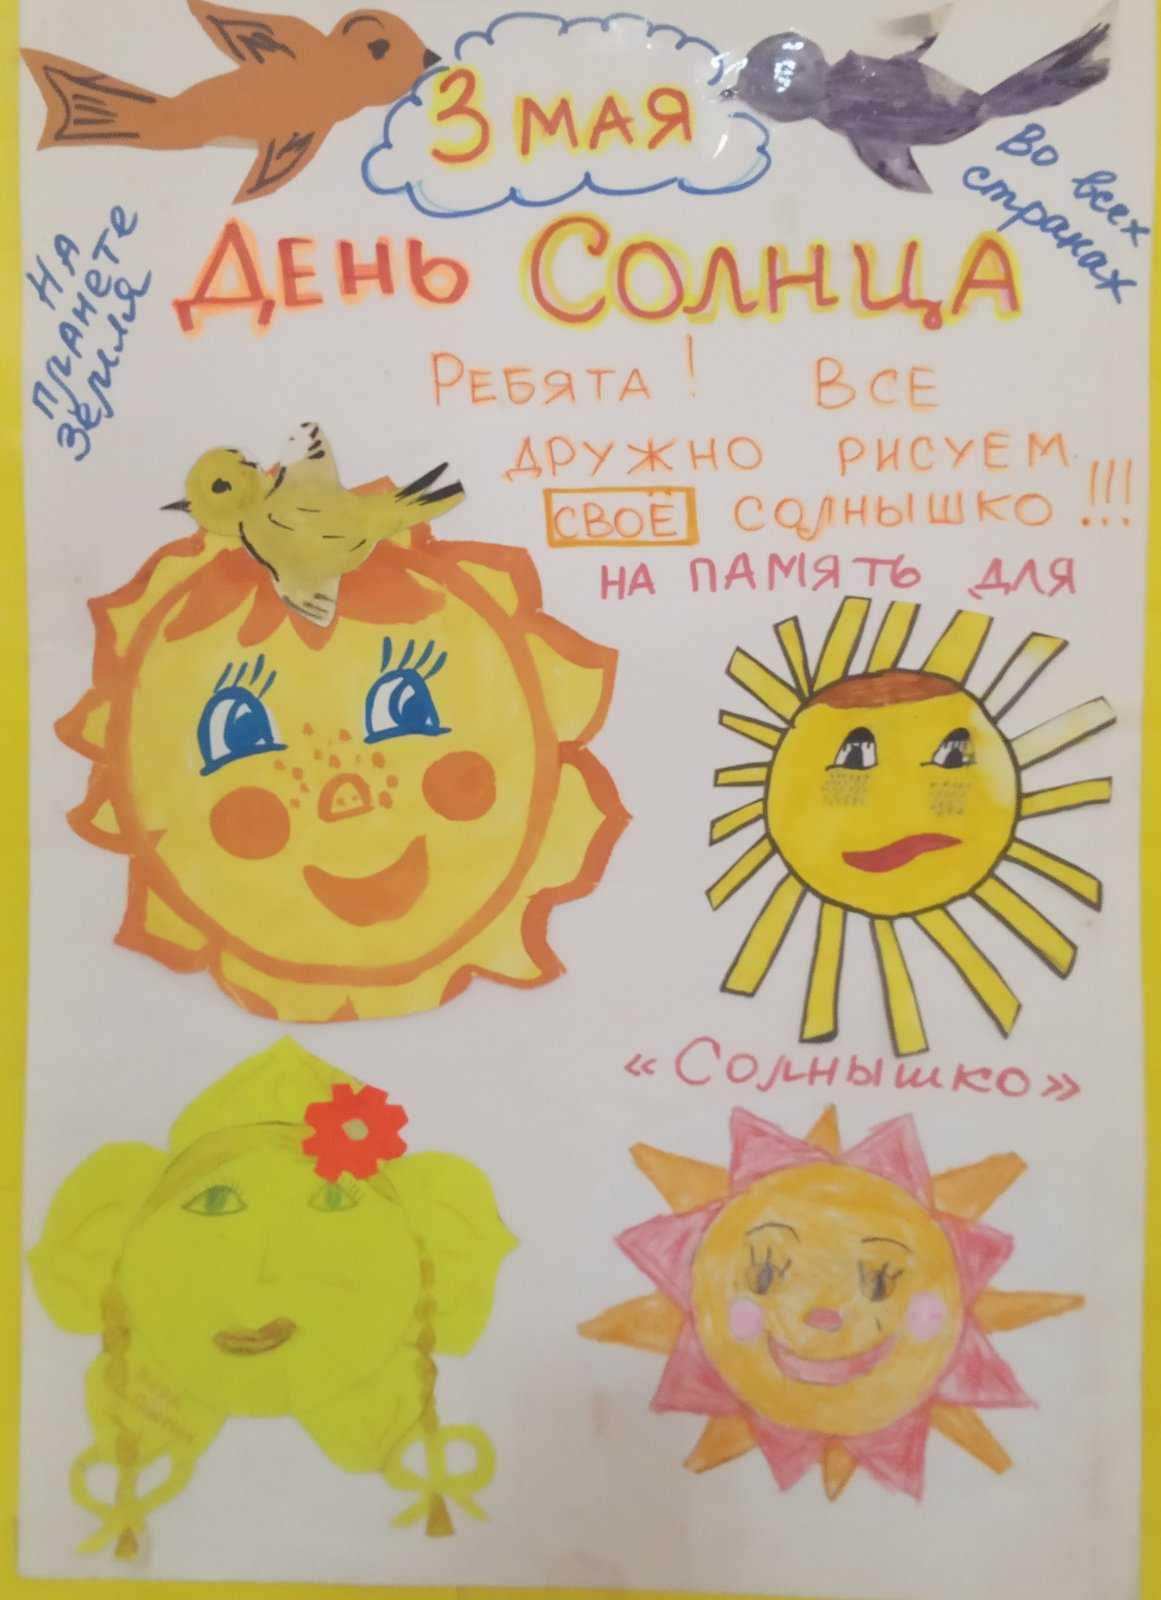 3 МАЯ
На
планете
Земля
Во всех
странах
День Солнца
Ребята! Все
дружно рисуем
своё солнышко!!!
на память для
«Солнышко»